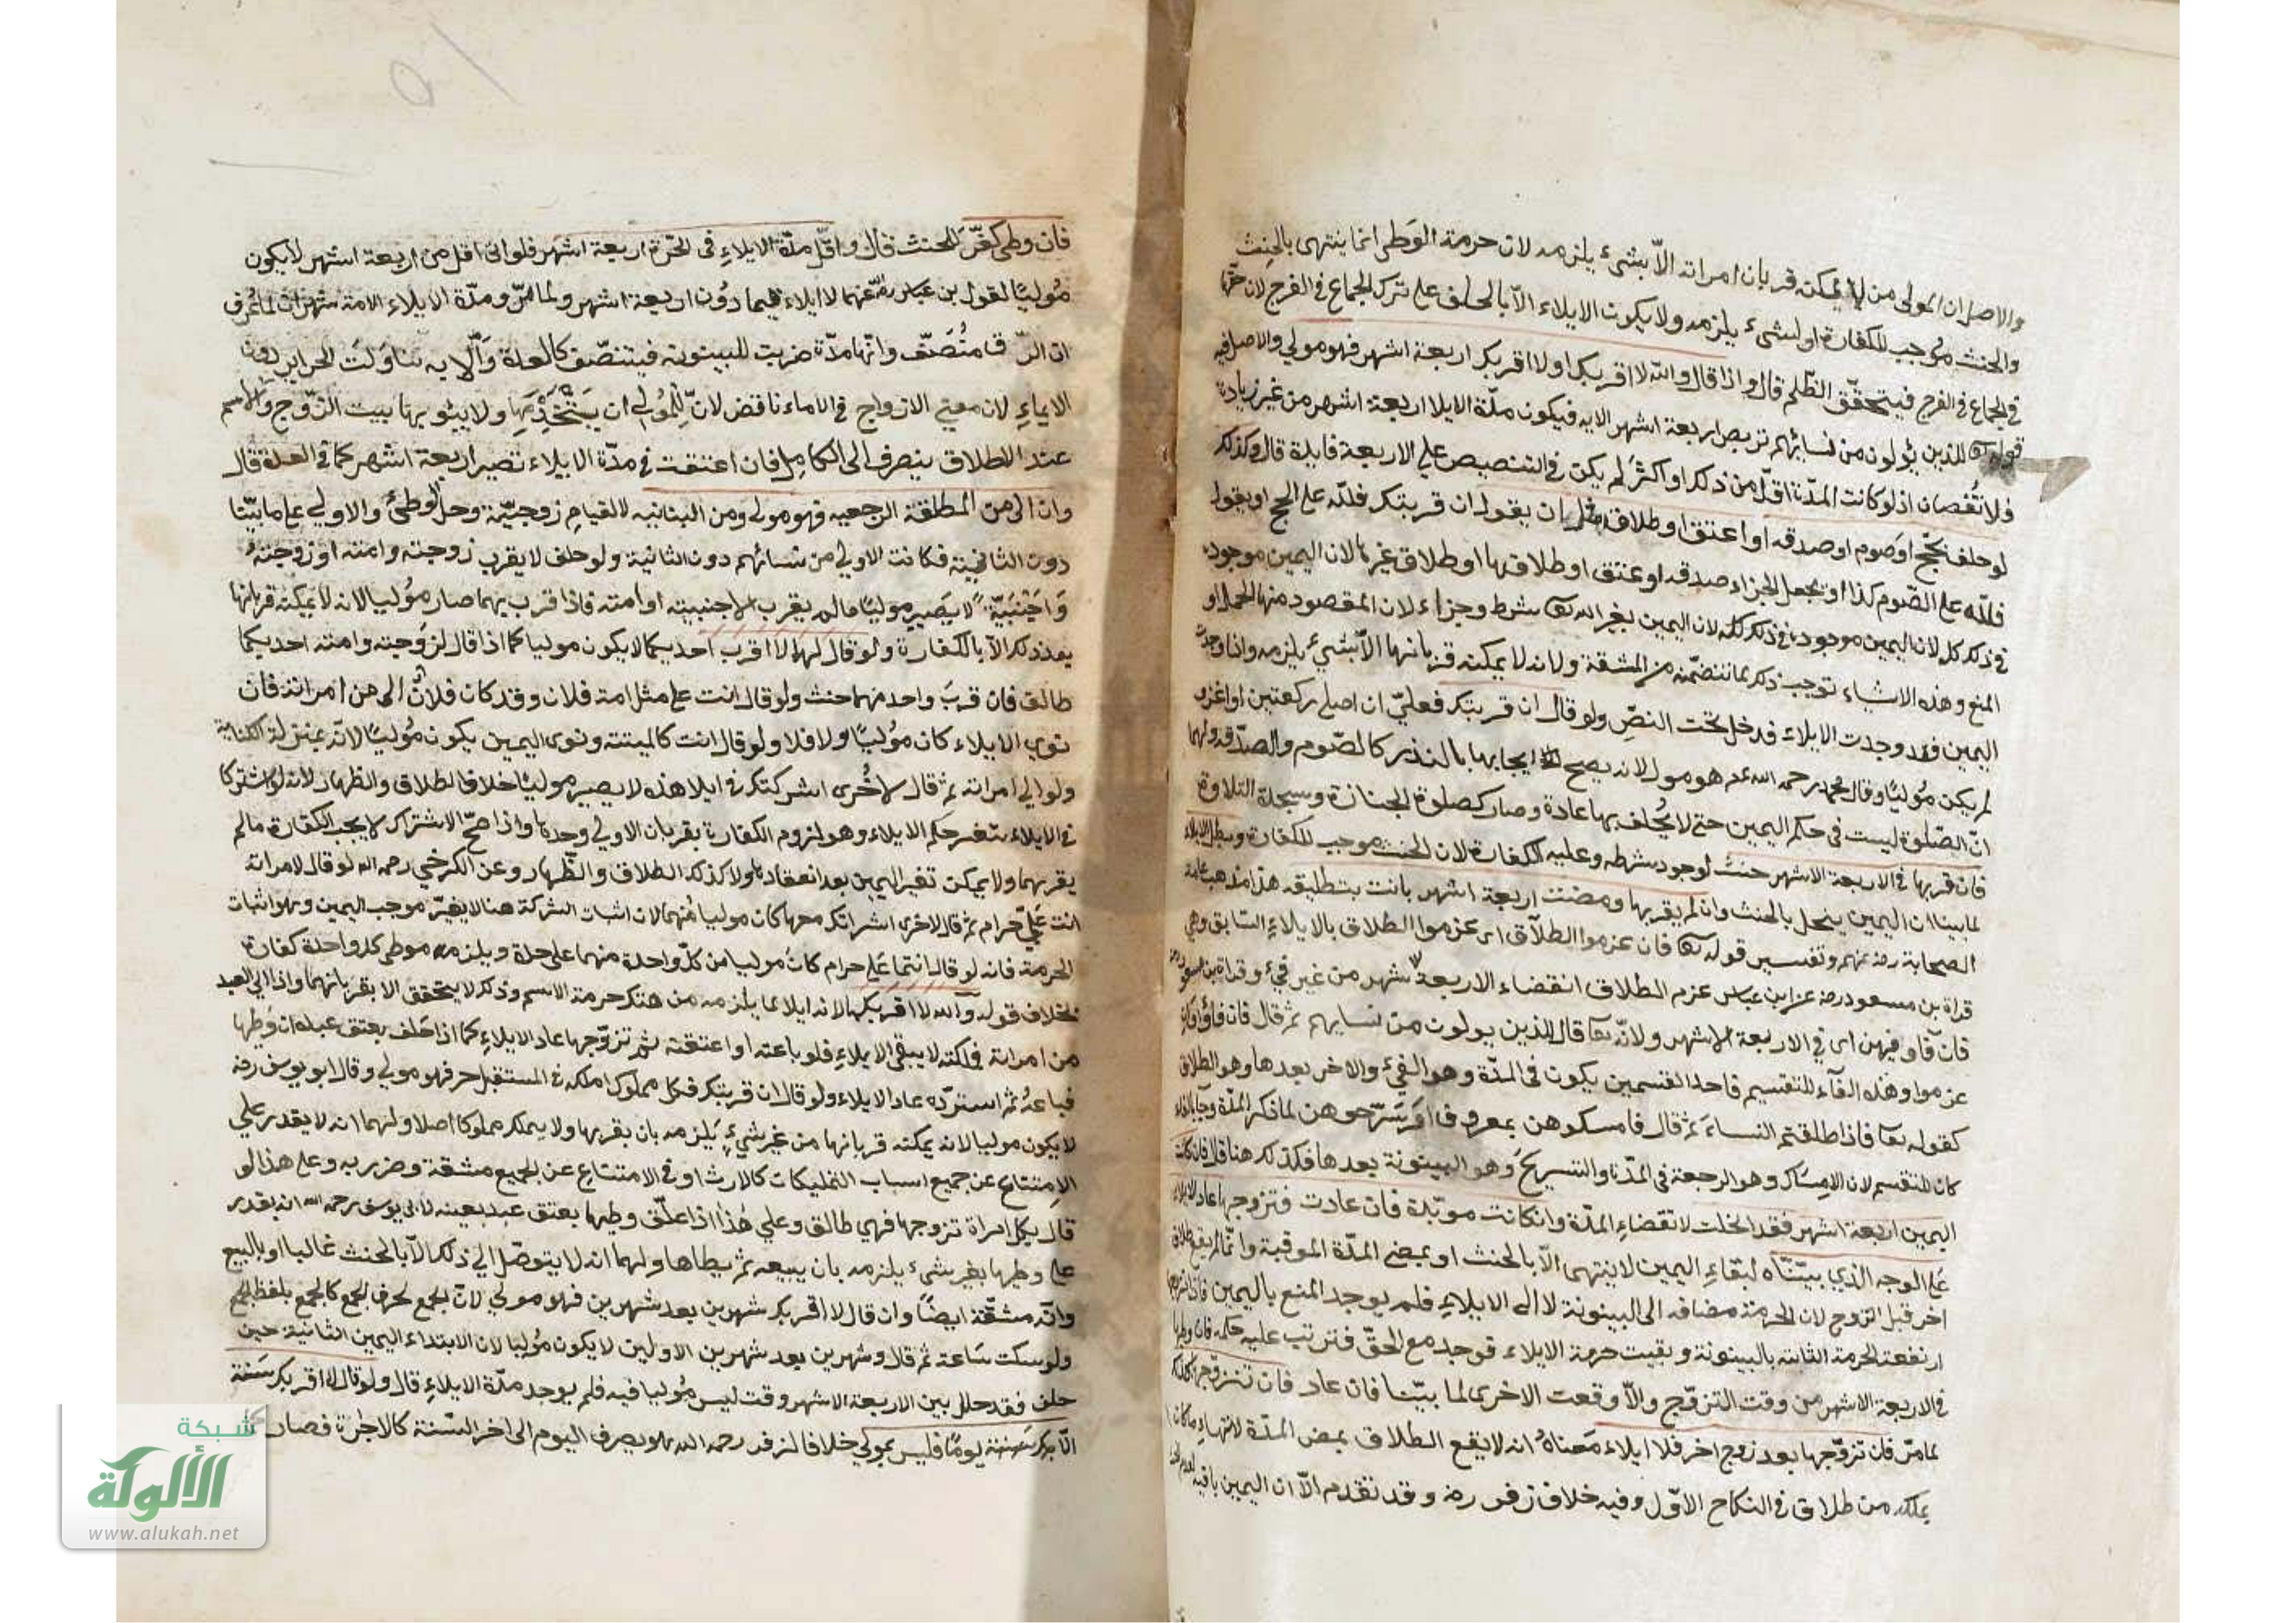 والاصل ان المولى من لا يمكنه قربان امراته الاّ بشىء يلزمه لان حرمة الوطى انما ينتهى بالحنث
والحنث موجب للكفارة او لشىء يلزمه ولا يكون الايلاء الاّ بالحلف على ترك الجماع فى الفرج لان حقّها
فى الجماع فى الفرج فيتحقّق الظّلم قال واذا قال والله لا اقربك او لا اقربك اربعة اشهر فهو مولي والاصل فيه
قوله تعا للذين يؤلون من نسائهم تربص اربعة اشهر الايه فيكون مدّة الايلا اربعة اشهر من غير زيادة
ولا نُقصان اذ لو كانت المدّة اقلّ من ذلك او اكثر لم يكن فى التنصيص علي الاربعة فايدة قال وكذلك
لو حلف بحجّ او صوم او صدقه او اعتق او طلاق مثل ان يقول ان قربتك فللّه علي الحج او يقول
فللّه علي الصّوم كذا او يجعل الجزاء صدقه او عتق او طلاقها او طلاق غيرها لان اليمين موجودة
فى ذلك كل لان اليمين موجودة فى ذلك كله لان اليمين بغير الله تعا شرط وجزاء لان المقصود منها الحمل او
المنع وهذه الاشياء توجب ذلك لما تتضمّنه من المشقة ولانه لا يمكنه قربانها الاّ بشيء يلزمه واذا وجدت
اليمين فقد وجدت الايلاء فدخل تحت النصّ ولو قال ان قربتك فعليّ ان اصلي ركعتين او اغزو
لم يكن مُوليًا وقال محمد رحمه الله هو مول لانه يصح ايجابها بالنذر كالصّوم والصدّقه ولهما
انّ الصّلوة ليست فى حكم اليمين حتى لا يُحلف بها عادة وصار كصلوة الجنازة وسجدة التلاوة
فان قربها فى الاربعة الاشهر حنث لوجود شرطه وعليه الكفارة لان الحنث موجب للكفارة وبطل الايلاء
لما بينا ان اليمين ينحل بالحنث وان لم يقربها ومضت اربعة اشهر بانت بتطليقه هذا مذهب عامة
الصحابة رضـ عنهم وتفسير قوله تعا فان عزموا الطلاق اى عزموا الطلاق بالايلاءِ السّابق وهي
قراة بن مسعود رضـ عن ابن عباس عزم الطلاق انقضاء الاربعة الاشهر من غير فيء وقراة بن مسعود
فان فآوفيهن اى فى الاربعة الاشهر ولانّه تعا قال للذين يولون من نسايهم ثم قال فان فاؤا وان
عزموا وهذه الفآء للتقسيم فاحد القسمين يكون فى المدّة وهو الفىء والاخر بعدها وهو الطلاق
كقوله تعا فاذا طلقتم النساء ثم قال فامسكوهن بمعروف او سرّحوهن لما ذكر المدّة وجآ بالفاء
كان للتقسيم لان الامساك وهو الرجعة فى المدّة والتسريح وهو البينونة بعدها فكذلك هنا قال فان كانت
اليمين اربعة اشهر فقد انحلت لانقضاءِ المدّة وان كانت موبّدة فان عادت فتزوجها عاد الايلاء
على الوجه الذي بيّنّاه لبقاءِ اليمين لا ينتهى الاّ بالحنث او بمضى المدّة الموقتة وانّما لم يقع طلاق
اخر قبل التزوج لان الحرمة مضافه الى البينونة لا الى الايلاءِ فلم يوجد المنع باليمين فاذا تزوجها
ارتفعت الحرمة الثابته بالبينونة وبقيت حرمة الايلاء فوجد مع الحقّ فترتب عليه حكمه فان وطيها
فى الاربعة الاشهر من وقت التزوّج والاّ وقعت الاخرى لما بيّنا فان عاد فان تزوّجها كذلك
لما مرّ فان تزوّجها بعد زوج اخر فلا ايلاء معناه انه لا يقع الطلاق بمضى المدّة لانتهاءِ ما كان
يملكه من طلاق فى النكاح الاوّل وفيه خلاف زفر رضـ وقد تقدم الاّ ان اليمين باقيه
فان وطى كفّر للحنث قال واقلّ مدّة الايلاءِ فى الحرّة اربعة اشهر فلو الى اقل من اربعة اشهر لا يكون
مُوليًا لقول بن عباس رضـ عنهما لا ايلاء فيما دوُن اربعة اشهر ولما مرّ ومدّة الايلاء الامة شهران لما عُرف
ان الرّق منُصَّف وانّها مدّة ضربت للبينونه فيتنصّف كالعدة والاية تناولت الحراير دون
الاماءِ لان معنى الازواج فى الاماء ناقص لانّ للمُولى ان يستخدمها ولا يبؤيها بيت الزّوج والاسم
عند الاطلاق ينصرف الى الكامل فان اعتقت فى مدّة الايلاء تصير اربعة اشهر كما فى العدة قال
وان الى من المطلقة الرجعيه فهو مولي ومن الباينه لا لقيام زوجيّة وحل الوطئ والاولي على ما بيّنا
دون الثانية فكانت الاولي من نسائهم دون الثانية ولو حلف لا يقرب زوجته وامته او زوجته
وَاجْنَبيّة لا يصير موليًا ما لم يقرب الاجنبيته او امته فاذا قرب بهما صار مُوليا لانه لا يمكنه قربانها
بعد ذلك الاّ بالكفارة ولو قال لهما لا اقرب احديكما لا يكون موليا كما اذا قال لزوجته وامته احديكما
طالق فان قربَ واحد منهما حنث ولو قال انت على مثل امة فلان وقد كان فلانٌ الى من امراته فان
نوى الايلاء كان مُوليًا ولا فلا ولو قال انت كالميتة ونوى اليمين يكون مُوليًا لانّه بمنزلة الكناية
ولو الي امراته ثم قال لاخُرى اشركتك فى ايلا هذه لا يصير موليًا خلافا لطلاق والظهار لانه لو اشتركا
فى الايلاء تغير حكم الايلاء وهو لزوم الكفارة بقربان الاولي وحدها واذا صحّ الاشتراك لا يجب الكفارة ما لم
يقربهما ولا يمكن تغير اليمين بعد انعقادها ولا كذلك الطلاق والظّهار وعن الكرخي رحمه الله لو قال لامراته
انت عَليّ حرام ثم قال لاخرى اشراتك معها كان موليا منهما لان اثبات الشركة هنا لا يغيّر موجب اليمين وهو اثبات
الحرمة فانه لو قال انتما عَلى حرام كان موليا من كلّ واحدة منهما على حدة ويلزمه موطى كل واحدة كفارة
بخلاف قوله والله لا اقربكما لانه ايلا لما يلزمه من هتك حرمة الاسم وذلك لا يتحقق الا بقربانهما واذا الي العبد
من امراته فملكته لا يبقى الايلاءِ فلو باعته او اعتقته ثم تزوّجها عاد الايلاءِ كما اذا حَلف بعتق عبده ان وُطيها
فباعهُ ثم استردّه عاد الايلاء ولو قال ان قربتك فكل مملوك املكه فى المستقبل حر فهو مولي وقال ابو يوسف رضـ
لا يكون موليا لانه يمكنه قربانها من غير شيءٍ يلزمه بان يقربها ولا يملك مملوكا اصلا ولهما انه لا يقدر علي
الاِمتناع عن جميع اسباب التمليكات كالارث او فى الامتناع عن الجميع مشقة وضرر به وعلى هذا لو
قال بكل امراة تزوجها فهى طالق وعلي هٰذا اذا علّق وطيها بعتق عبد بعينه لابى يوسف رحمه الله انه يقدر
على وطيها بغير شىء يلزمه بان يبيعه ثم يطاها ولهما انه لا يتوصّل الي ذلك الاّ بالحنث غالبا او بالبيع
وانّه مشقّة ايضًا وان قال لا اقربك شهرين بعد شهرين فهو مولي لانّ الجمع لحرف الجمع كالجمع بلفظ الجمع
ولو سكت سَاعة ثم قال وشهرين بعد شهرين الاولين لا يكون مُوليا لان الابتداء اليمين الثانية حين
حلف فقد حلل بين الاربعة الاشهر وقت ليس مُوليا فيه فلم يوجد مدّة الايلاءِ قال ولو قال لا اقربك سَنة
الاّ يومًا فليس بمولي خلافا لزفر رحمه الله هو يصرف اليوم الى اخر السّنة كالاجٰرة فصار
شبكة
الألوكة
www.alukah.net